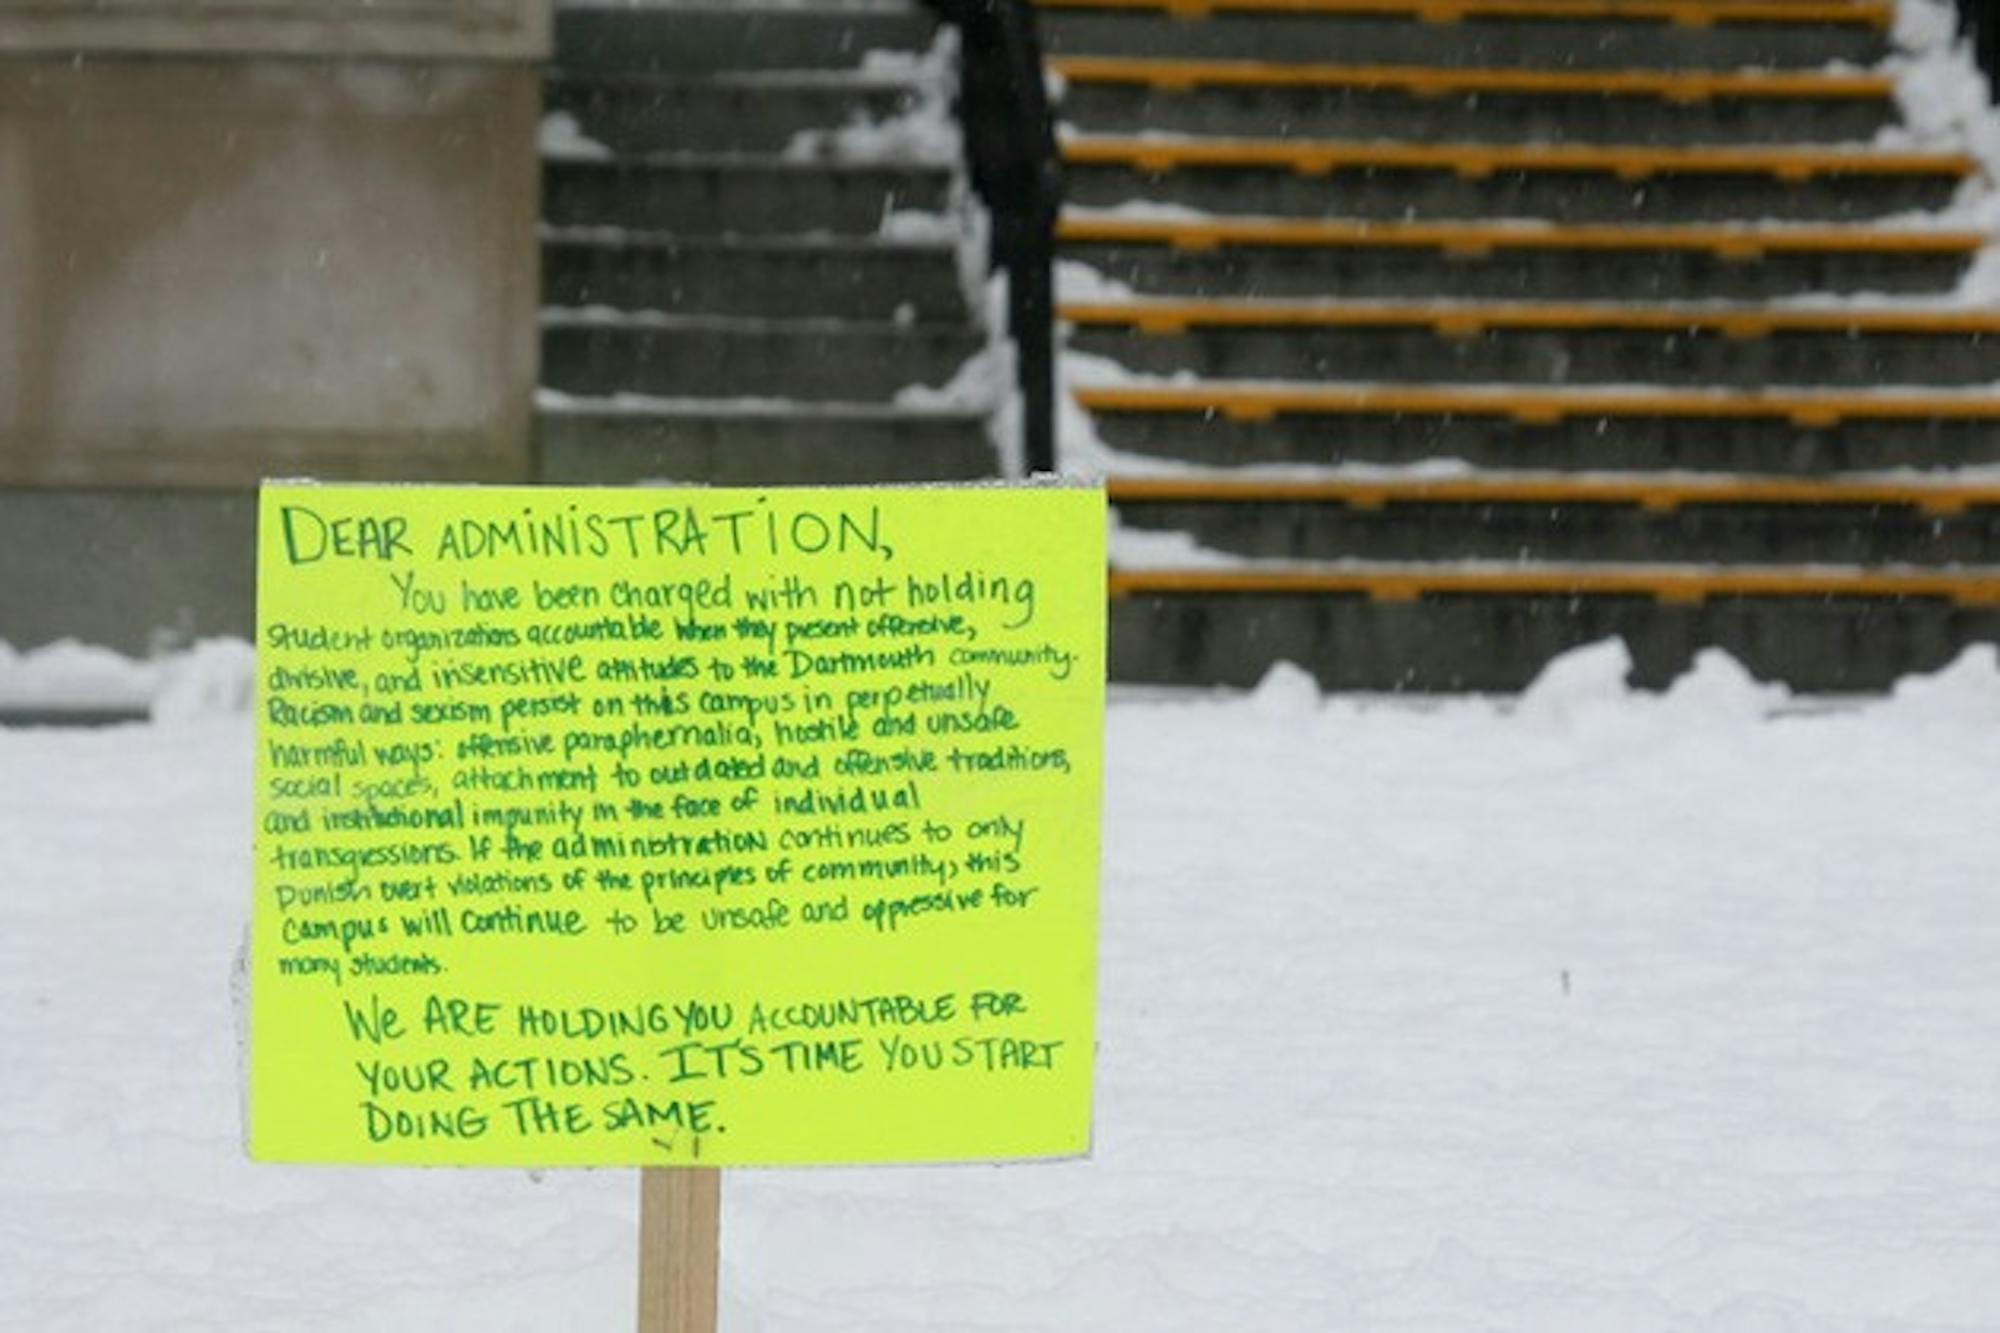 DEAR ADMINISTRATION,
You have been charged with not holding
student organizations accountable when they present offensive,
divisive, and insensitive attitudes to the Dartmouth community.
Racism and sexism persist on this campus in perpetually
harmful ways: offensive paraphernalia, hostile and unsafe
social spaces, attachment to outdated and offensive traditions,
and institutional impunity in the face of individual
transgressions. If the administration continues to only
punish overt violations of the principles of community, this
campus will continue to be unsafe and oppressive for
many students.
We ARE HOLDING YOU ACCOUNTABLE FOR
YOUR ACTIONS. IT'S TIME YOU START
DOING THE SAME.